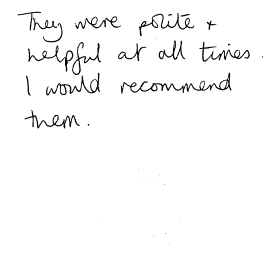 They were polite +
helpful at all times.
I would recommend
them.